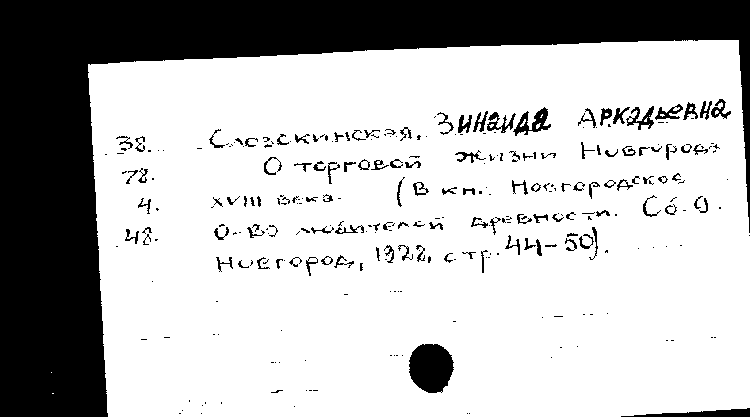 38. Слезскинская, Зинаида Аркадьевна
78. О торговой жизни Новгорода
4. XVIII века. (В кн.: Новгородское
48. О-во любителей древности. Сб. 9.
Новгород, 1928, стр. 44-50).